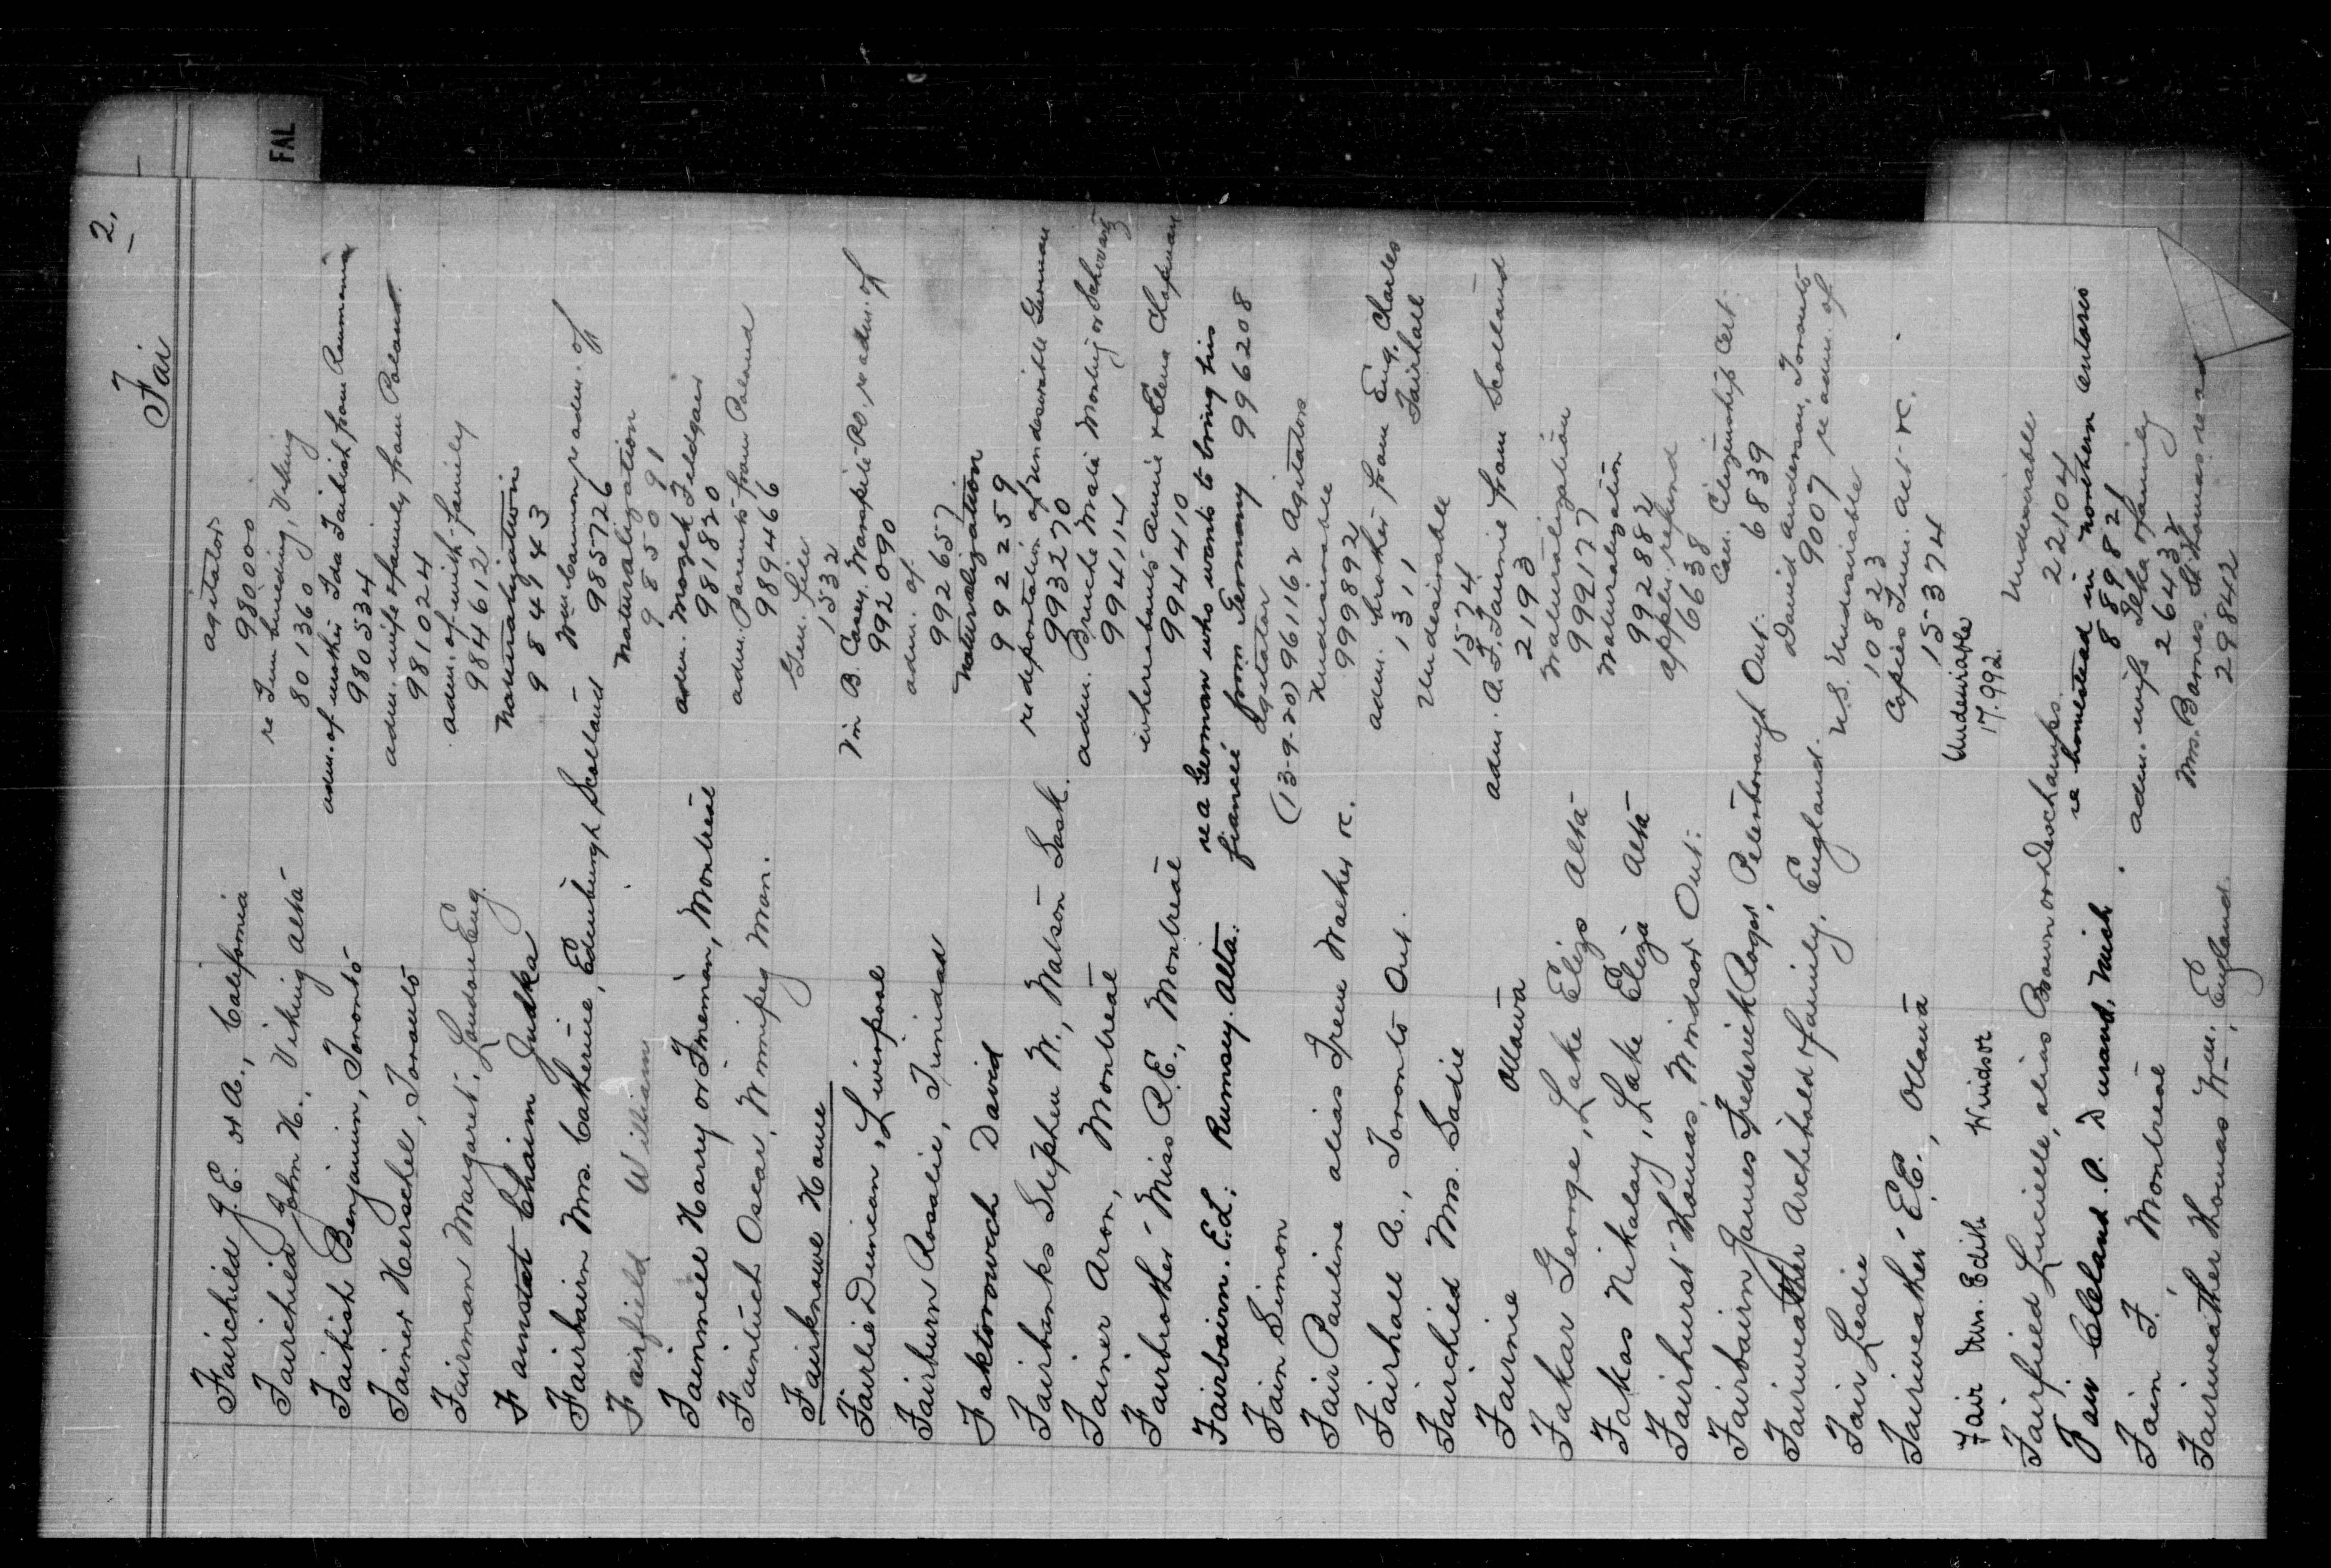 2.
Fai
FAL
Fairchild J.E. or A., California agitators
980000
Fairchild John H., Viking Alta re Imm. Viking
801360
Faibish Benjamin, Toronto adm. of mother Ida Faibish from Roumania
980534
Fainer Herschel, Toronto adm. wife & family from Poland
981024
Fairman Margaret, London Eng. adm. of with family
984612
Fainstat Chaim Judka Naturalization
984943
Fairbairn Mrs. Catherine, Edinburgh Scotland Wm. Cannon re adm. of
985726
Fairfield William Naturalization
985091
Fainmell Harry or Fineman, Montreal adm. Mozek Feldgaer
981820
Fainluch Oscar, Winnipeg Man. adm. Parents from Poland
989466
Fairknowe Home Gen. File
1532
Fairlie Duncan, Liverpool Vin B. Casey, re adm. of
992090
Fairburn Rosalie, Trinidad adm. of
992657
Faktorowich David Naturalization
992259
Fairbanks Stephen W., Watson Sask. re deportation of undesirable German
993270
Fainer Aron, Montreal adm. Bruche Malie or Schwartz
994114
Fairbrother Miss R.E., Montreal whereabouts Annie & Elena Chapman
994410
Fairbairn. E.L. Rumsey. Alta. re a German who wants to bring his
fianceé from Germany 996208
Fain Simon agitator
(13-9-20) 961162 Agitators
Fair Pauline alias Irene Walker rc. Undesirable
999892
Fairhall A., Toronto Ont. adm. brother from Eng. Charles
1311 Fairhall
Fairchied Mrs. Sadie Undesirable
1574
Fairnie Ottawa adm. A.F. Fairnie from Scotland
2193
Fakar George, Lake Eliza Alta Naturalization
999177
Fakas Nikalay, Lake Eliza Alta Naturalization
992882
Fairhurst Thomas, Windsor Ont. appln. refund
6638
Fairbairn James Frederick Roger, Peterborough Ont. Can. Citizenship Cert.
6839
Fairweather Archibald & family, England. David Anderson, Toronto
9007 re adm. of
Fair Leslie U.S. Undesirable
10823
Fairweather E.C., Ottawa Copies Imm. Act rc.
15374
Fair Mrs. Edith Windsor Undesirable
17.992.
Fairfield Lucielle, alias Brown or Deschamps. Undesirable
22104
Fair Cleland. P. Durand, Mich. re homestead in northern Ontario
889821
Fain F. Montreal adm. wife & family
26432
Fairweather Thomas Wm., England. Mrs. Barnes, St. Thomas re ad
29842